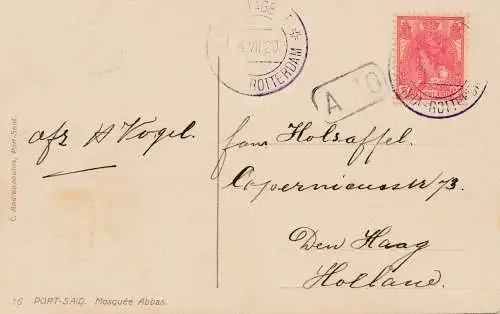 4 VII 20
ROTTERDAM
A 10
afz H Vogel.
fam Holsaffel.
Copernicusstr 73.
Den Haag
Holland.
C. Andreopoulos, Port-Said.
16 PORT-SAID. Mosquée Abbas.